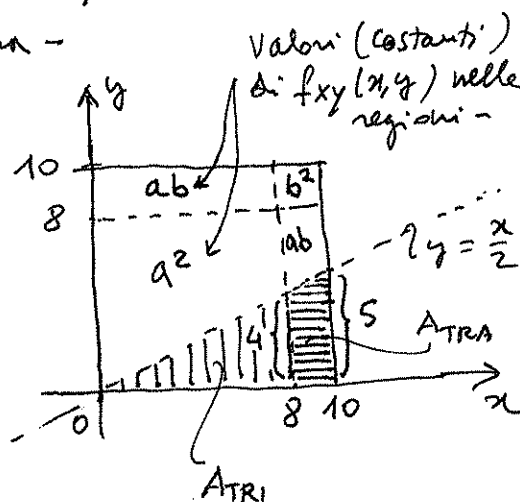 na -
Valori (costanti)
di fxy(x,y) nelle
regioni -
y
10
ab
b²
8
a²
ab
y = x/2
4
5
A_TRA
0
8 10
x
A_TRI